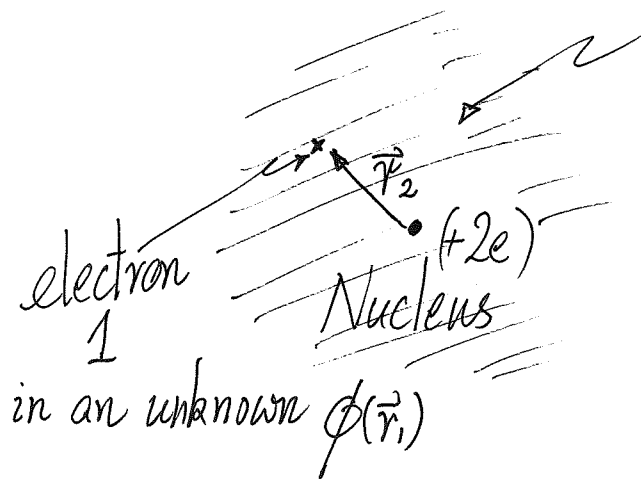 $\vec{r}_2$
(+2e)
electron
Nucleus
1
in an unknown $\phi(\vec{r}_1)$